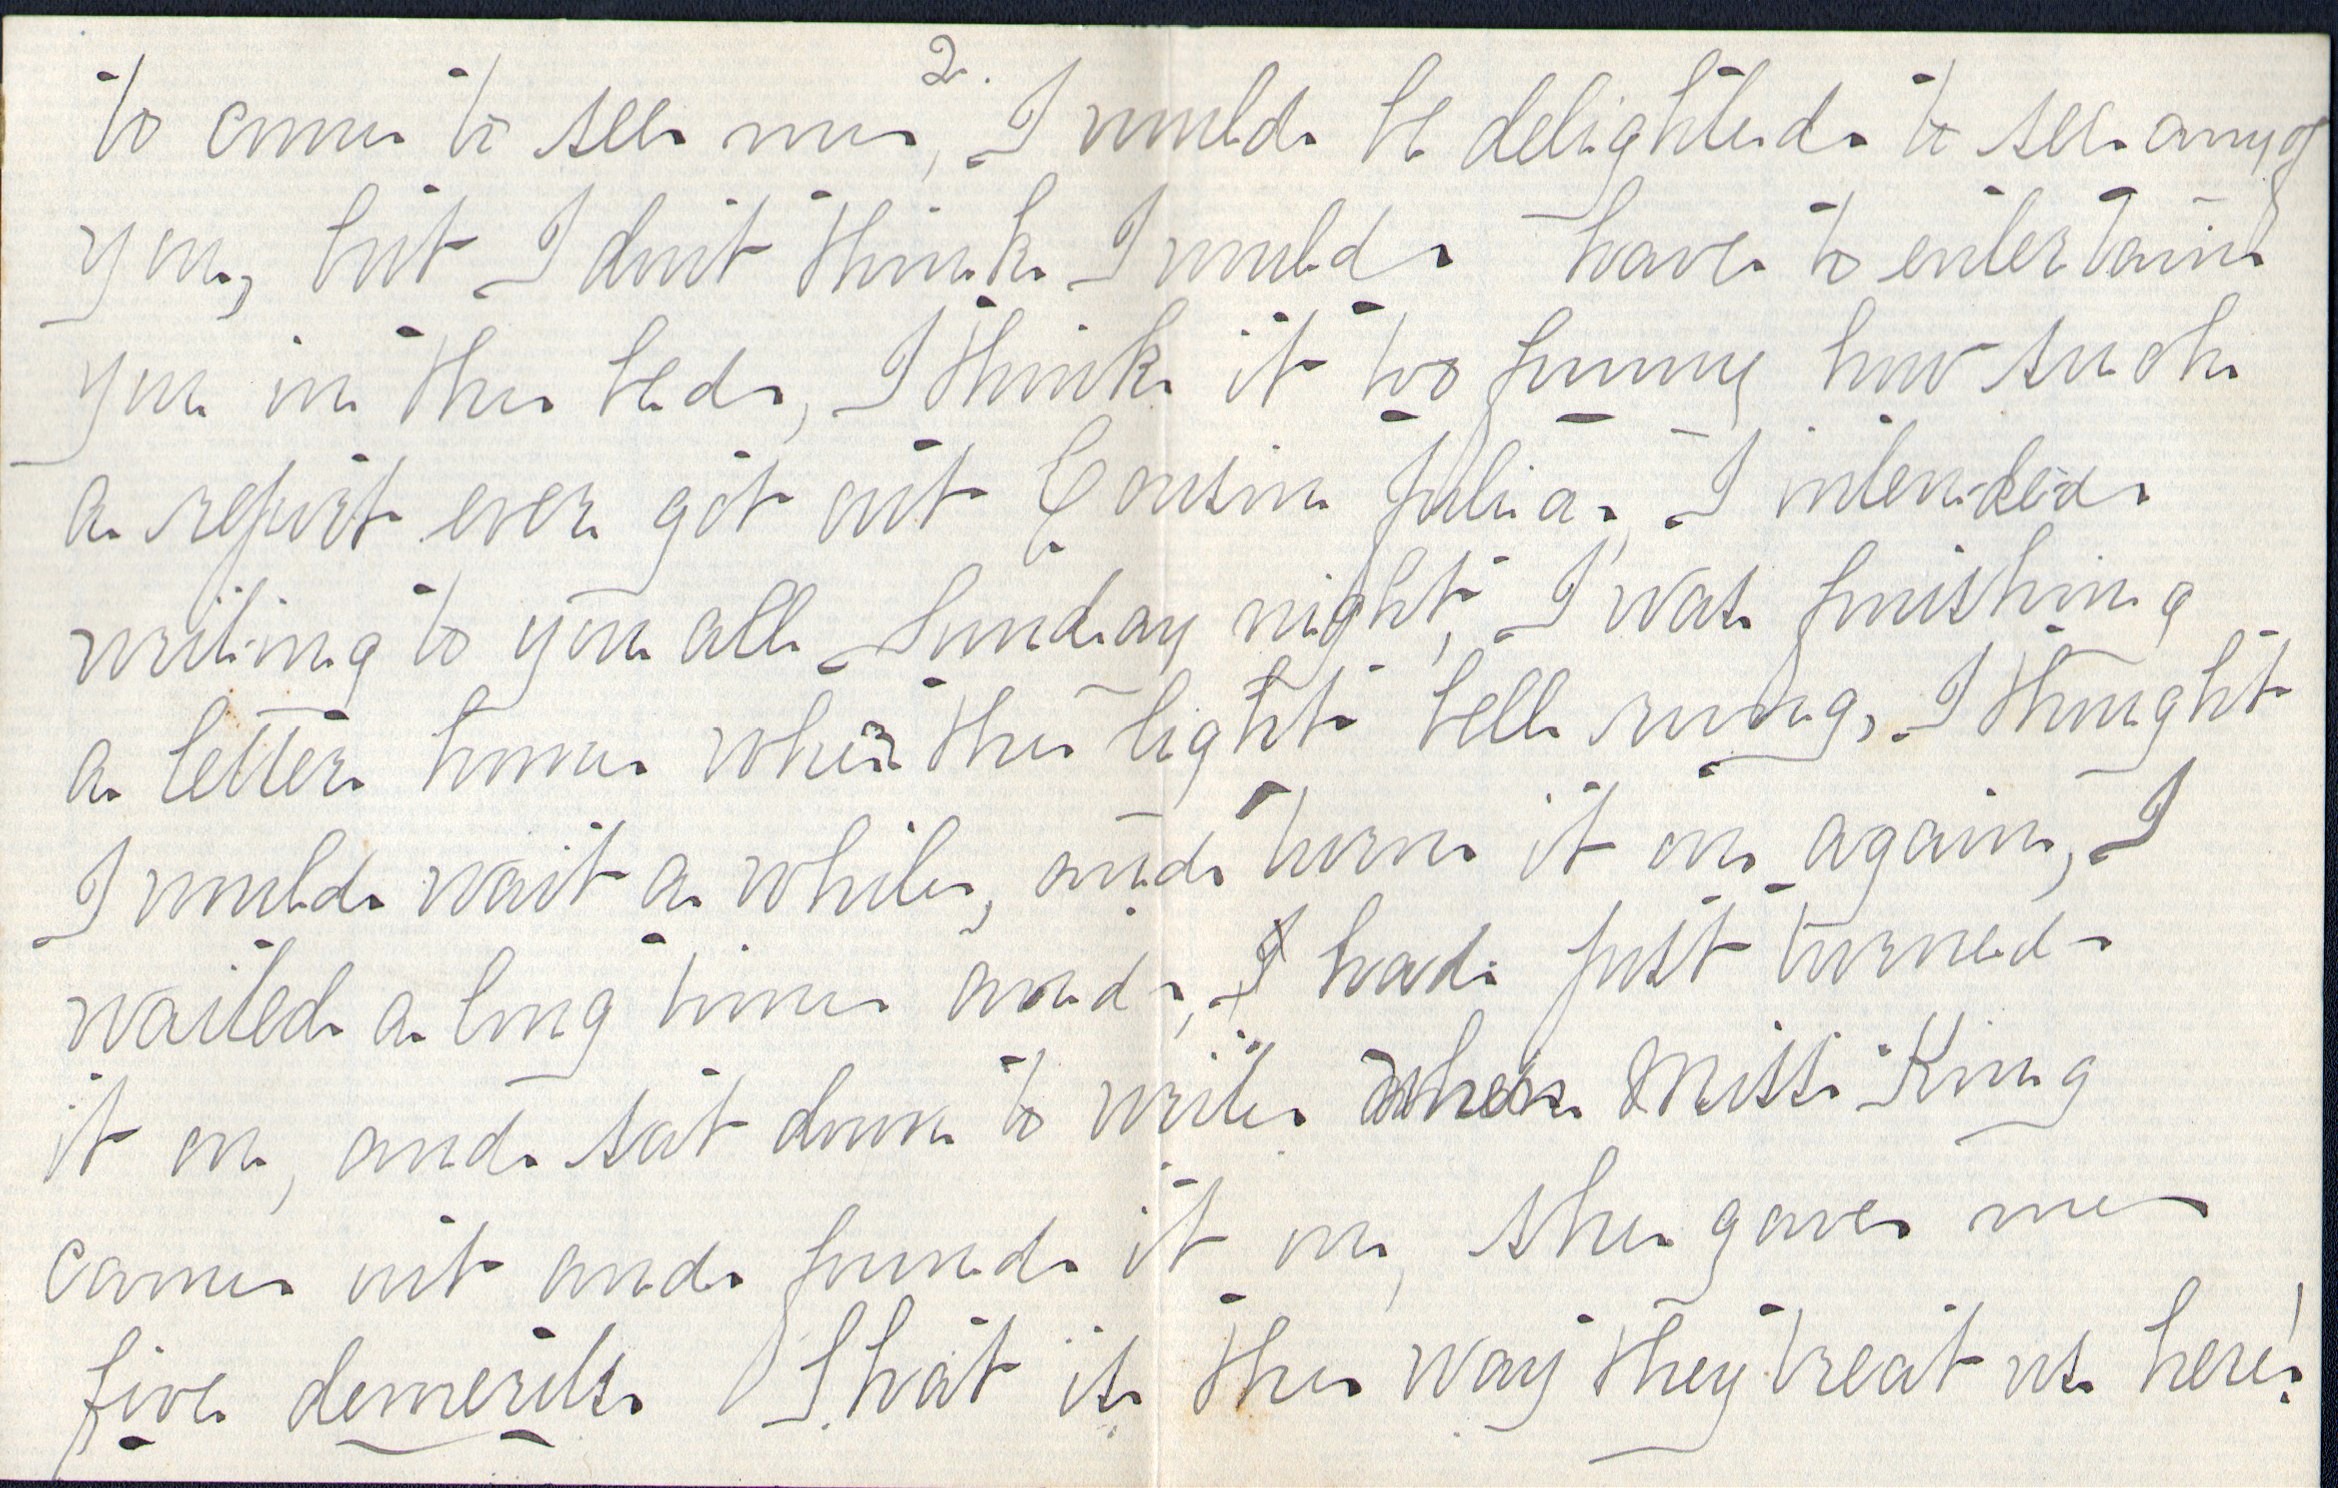 2.
to come to see me, I would be delighted to see any of
you, but I don't think I would have to entertain
you in the bed, I think it too funny how such
a report ever got out Cousin Julia, I intended
writing to you all Sunday night, I was finishing
a letter home when the light bell rung, I thought
I would wait a while, and turn it on again, I
waited a long time and, I had just turned
it on, and sat down to write when Miss King
came out and found it on, she gave me
five demerits. That is the way they treat us here!